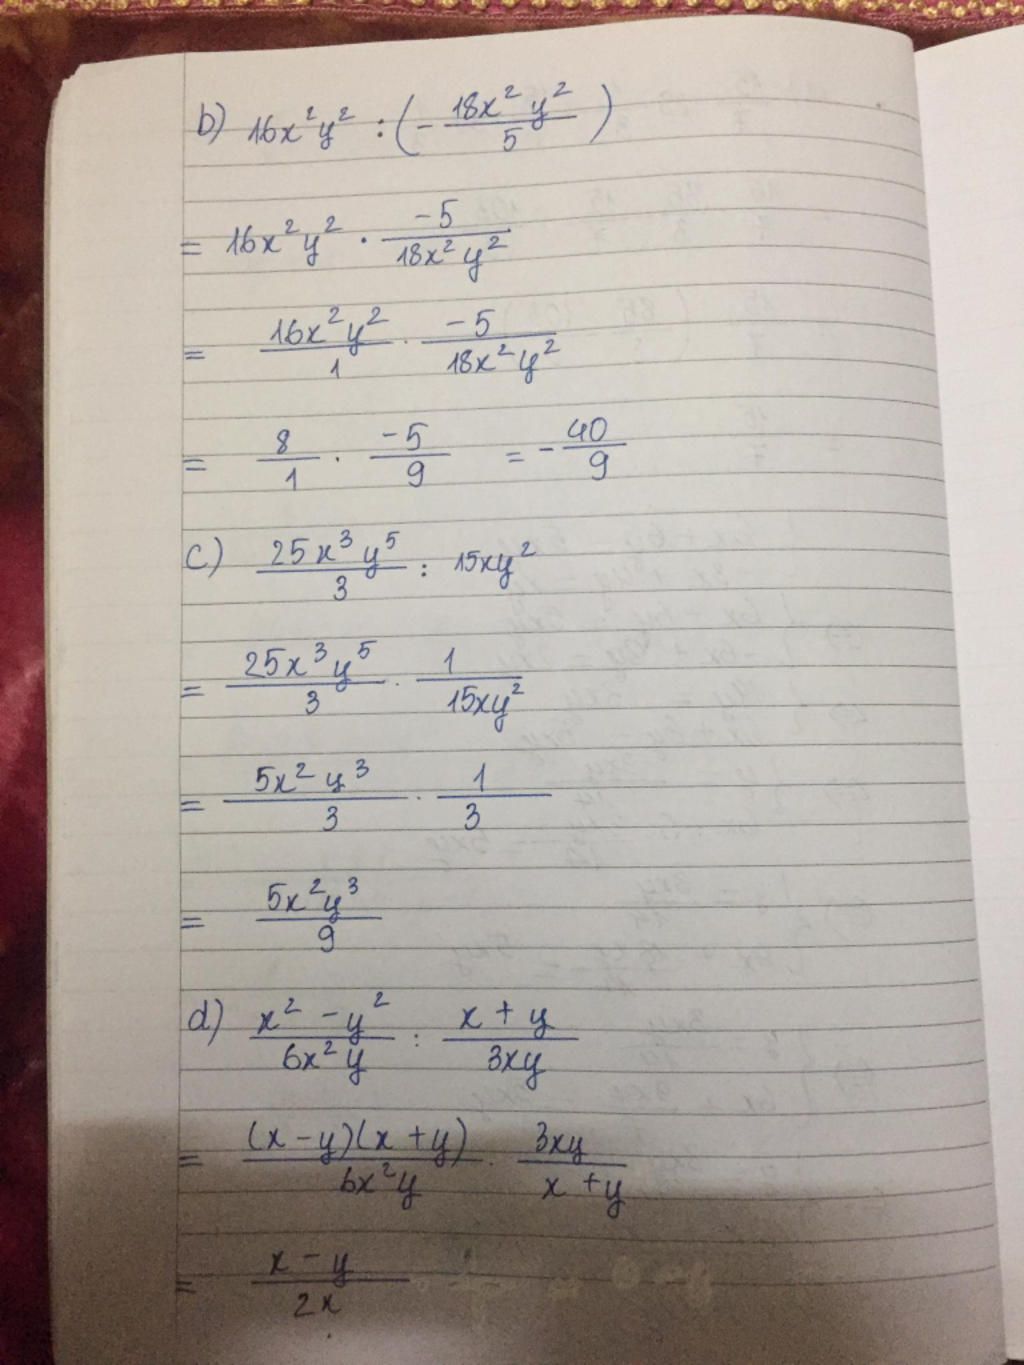 b) 16x²y² : (- 18x²y²/5)
= 16x²y² · -5/18x²y²
= 16x²y²/1 · -5/18x²y²
= 8/1 · -5/9 = - 40/9
c) 25x³y⁵/3 : 15xy²
= 25x³y⁵/3 · 1/15xy²
= 5x²y³/3 · 1/3
= 5x²y³/9
d) x² - y²/6x²y : x + y/3xy
= (x - y)(x + y)/6x²y · 3xy/x + y
= x - y/2x